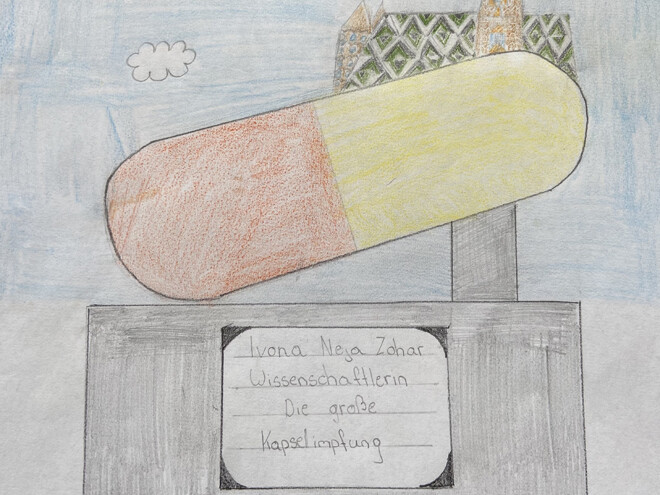 Ivona Neja Zohar
Wissenschaftlerin
Die große
Kapselimpfung